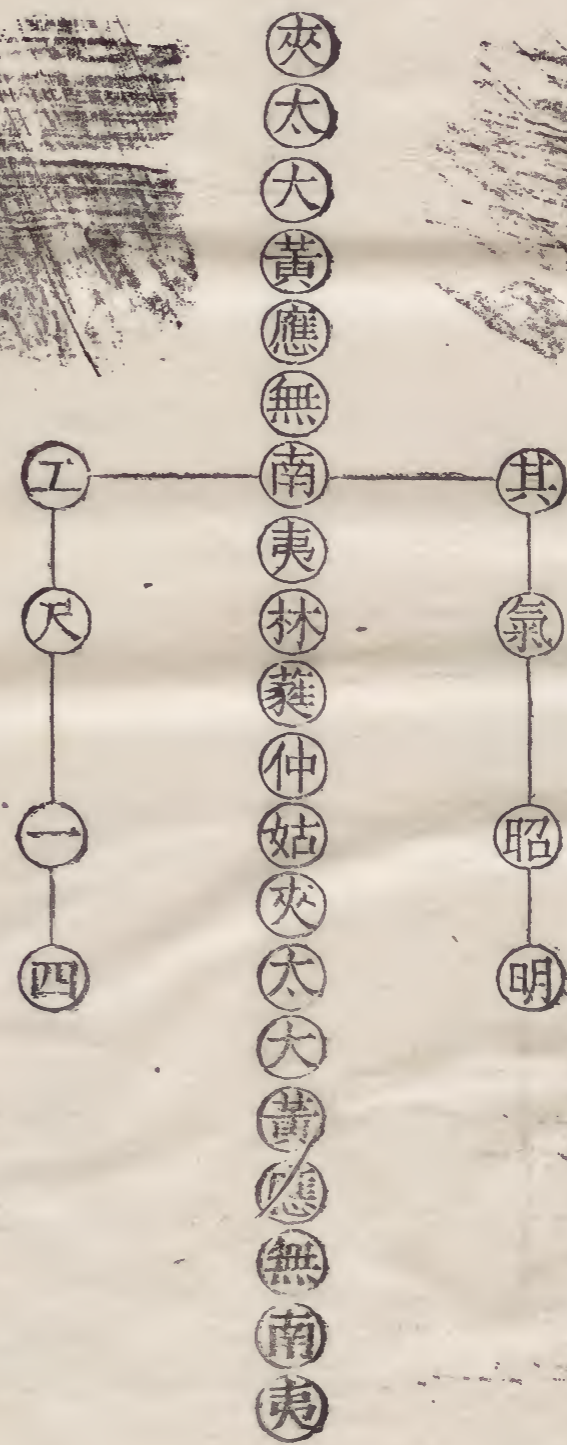 其氣昭明
夾太大黃應無南夷林蕤仲姑夾太大黃應無南夷
工尺一四